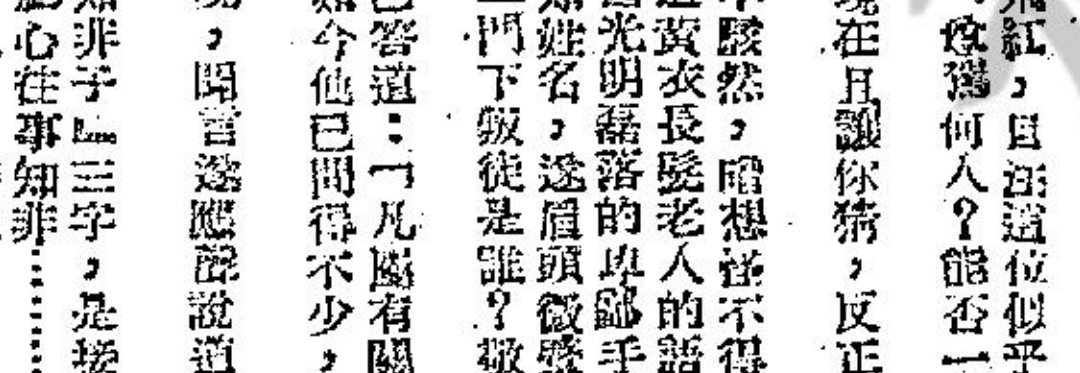 紅，且這位似乎
何人？能否一
現在且讓你猜，反正
駭然，暗想怪不得
黃衣長髮老人的話
光明磊落的卑鄙手
姓名，遂眉頭微
門下叛徒是誰？敬
答道：「凡屬有關
如今他已問得不少，
，聞言遂應聲說道
知非子』三字，是接
心往事知非……